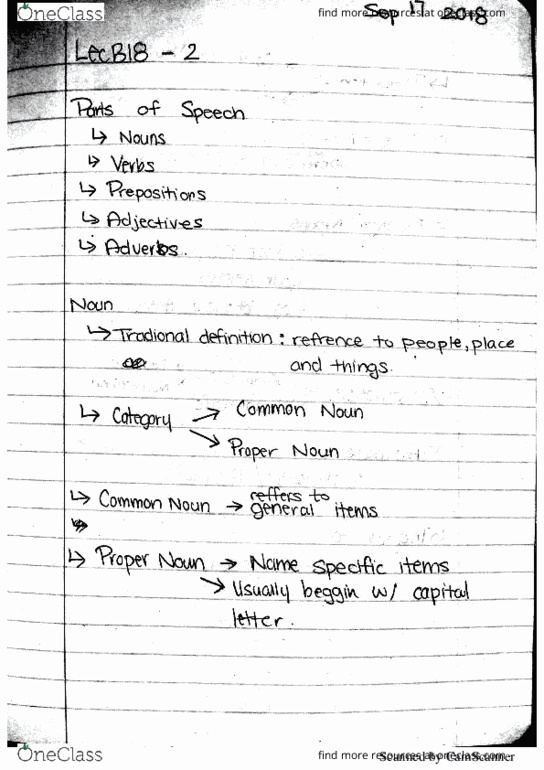 OneClass
find more resources at oneclass.com
Sep 17 2018
LecB18 - 2
Parts of Speech
↳ Nouns
↳ Verbs
↳ Prepositions
↳ Adjectives
↳ Adverbs.
Noun
↳ Tradional definition : refrence to people, place
and things.
↳ Category → Common Noun
↘ Proper Noun
↳ Common Noun → reffers to
general items
↳ Proper Noun → Name specific items
↘ Usually beggin w/ capital
letter.
OneClass
find more resources at oneclass.com
Scanned by CamScanner